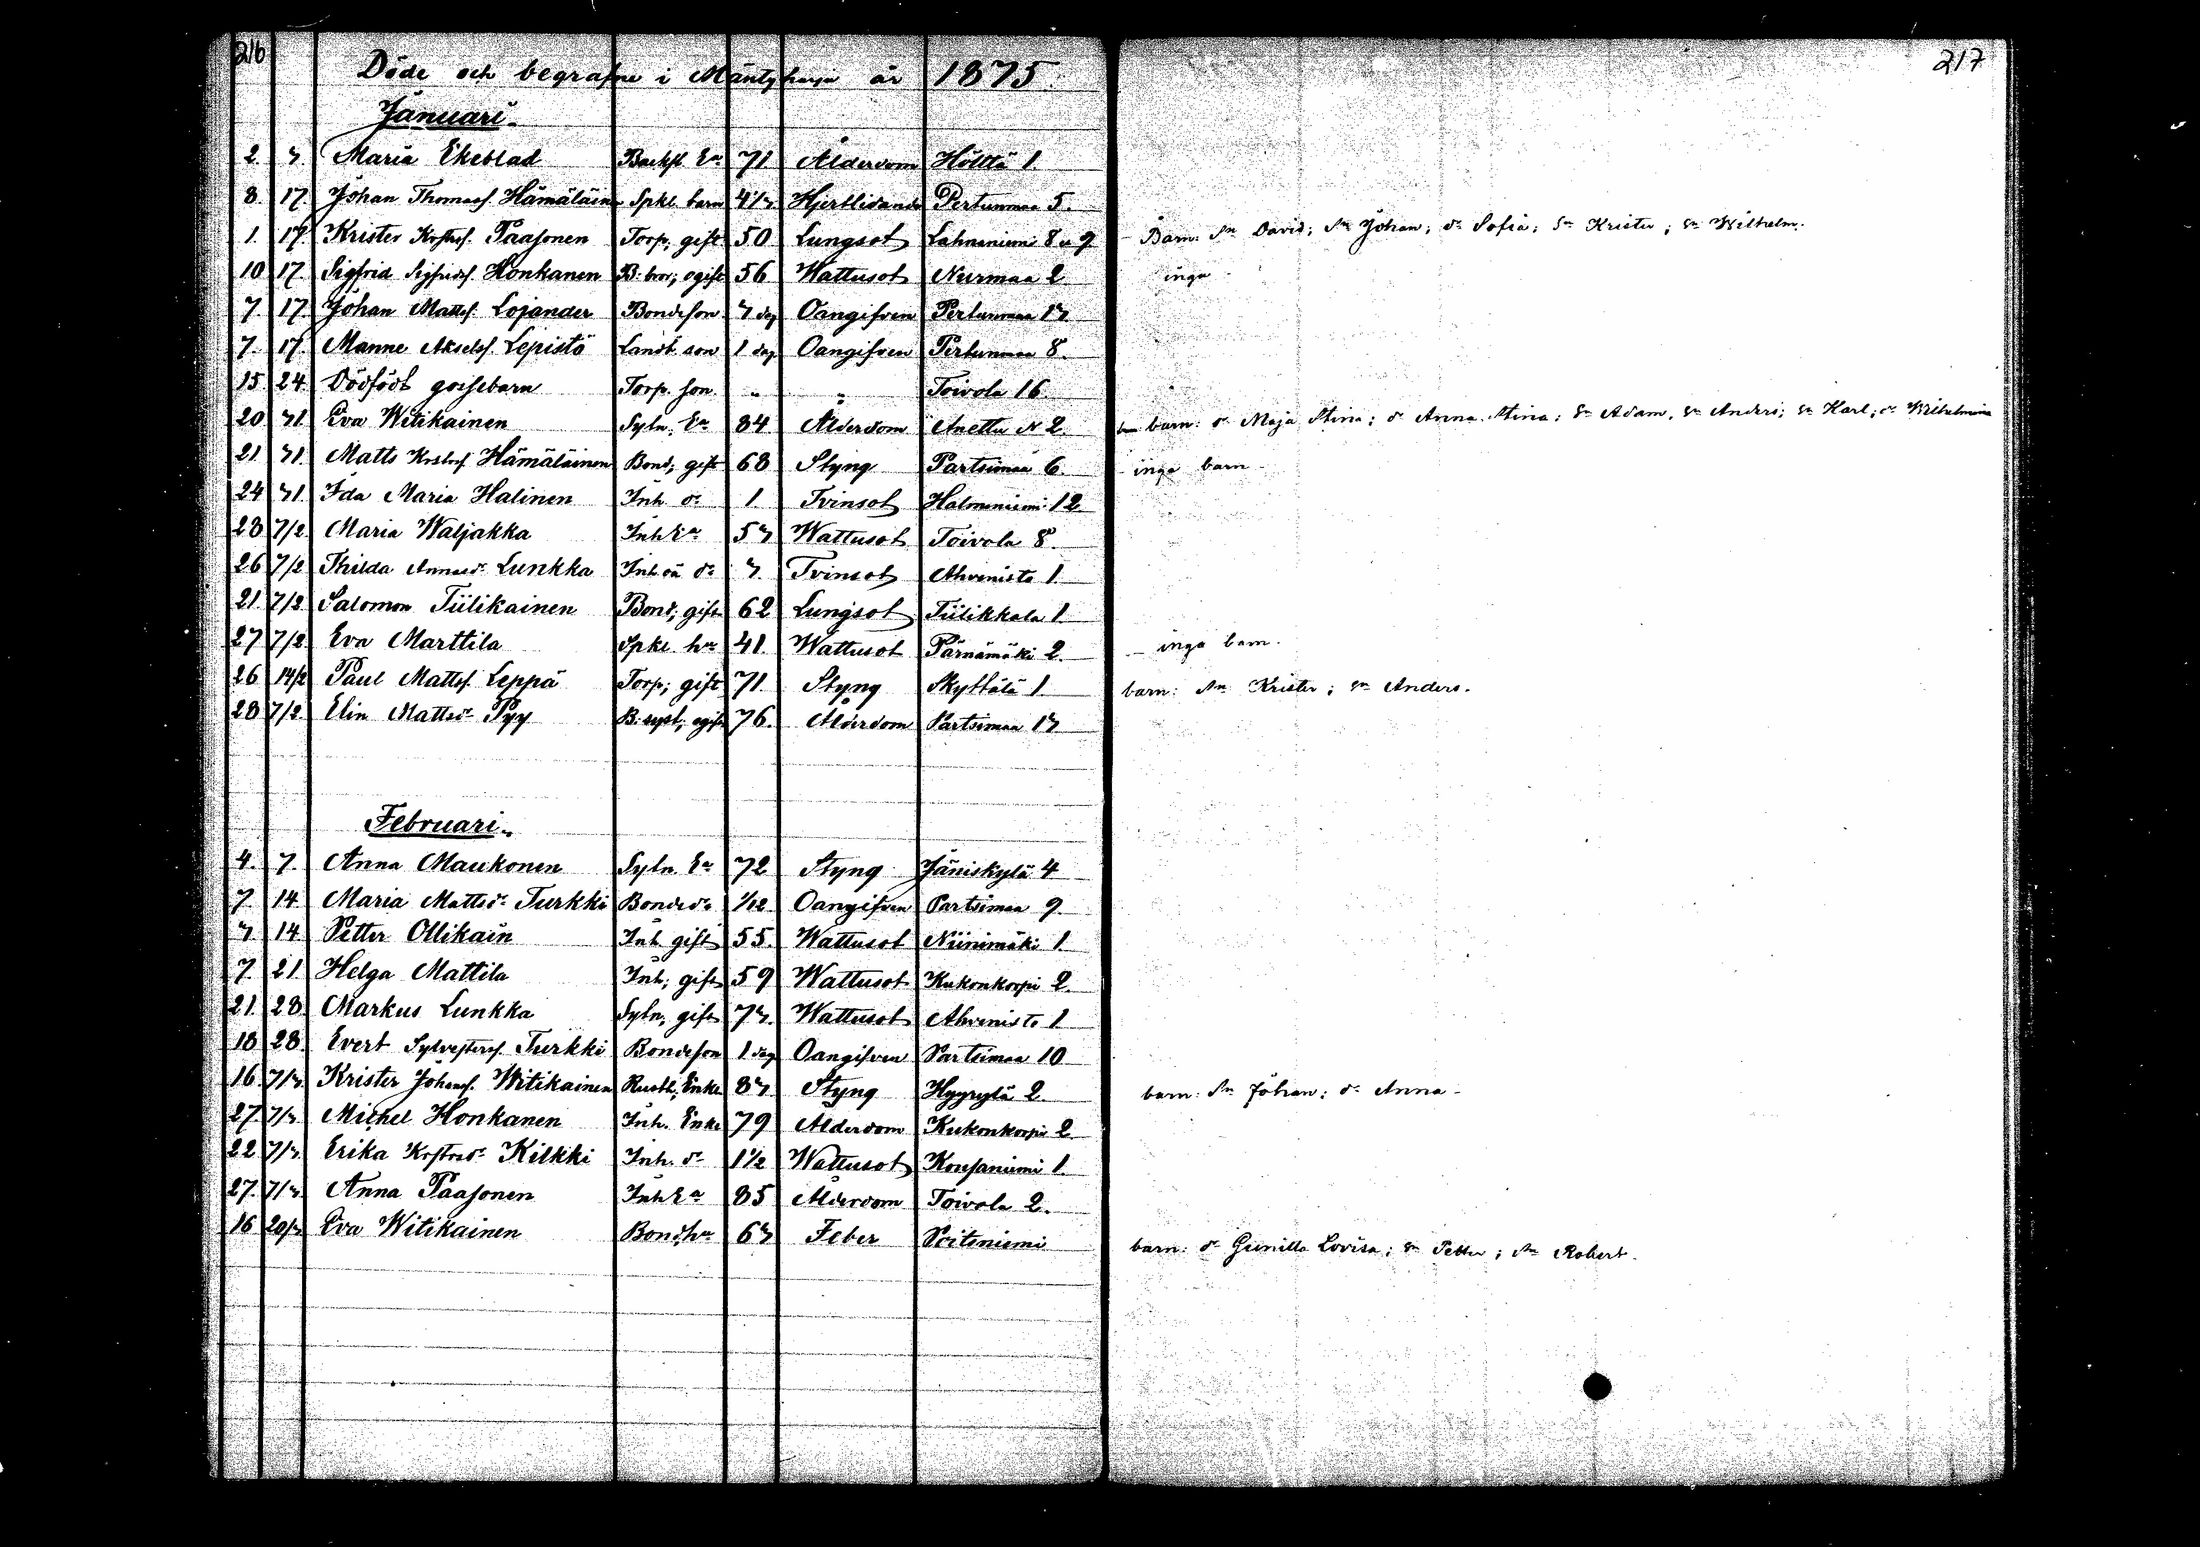 216
Döde och begrafne i Mäntyharju år 1875.
217
Januari.
2. 3. Maria Ekeblad Backst. Ea 71 Ålderdom Höltta 1.
8. 17. Johan Thomass. Hämäläinen Spkl. barn 4 1/3 Hjertlidande Pertunmaa 5.
1. 17. Krister Krstrs. Paasonen Torp; gift 50 Lungsot Lahnaniemi 8 o 9 - Barn: Sn David; Sn Johan; dr Sofia; Sn Krister; Sn Wilhelm.
10 17. Sigfrid Sigfrids. Honkanen B. bror; ogift 56 Wattusot Nurmaa 2 inga
7. 17. Johan Mattss. Lojander Bondeson 3 dag Oangifven Pertunmaa 13
7. 17. Manne Akselss. Lepistö Landb. son 1 dag Oangifven Pertunmaa 8.
15. 24. Dödfödt gossebarn Torp. son. " " Toivola 16.
20 31. Eva Witikainen Sytn. Ea 84 Ålderdom Anettu N 2. barn: dr Maja Stina; dr Anna Stina; Sn Adam, Sn Anders; Sn Karl; dr Wilhelmina
21. 31. Matts Krstrs. Hämäläinen Bond; gift 68 Styng Partsimaa 6. - inga barn -
24 31. Ida Maria Halinen Inh. dr 1. Tvinsot Halmeniemi 12.
28 7/2 Maria Waljakka Inh Ea 53 Wattusot Toivola 8.
26 7/2 Thilda Annasdr Lunkka Inh oä dr 3. Tvinsot Ahvenisto 1.
21. 7/2 Salomon Tiilikainen Bond; gift 62 Lungsot Tiilikkala 1
27 7/2 Eva Marttila Spkl. hu 41. Wattusot Pärnämäki 2. - inga barn.
26 14/2 Paul Mattss. Leppä Torp; gift 71. Styng Skyttälä 1. barn: Sn Krister; Sn Anders.
28 7/2. Elin Mattsdr Pyy B. syst; ogift 76. Ålderdom Partsimaa 13
Februari.
4. 7. Anna Maukonen Sytn. Ea 72 Styng Jäniskylä 4
7. 14. Maria Mattsdr Turkki Bondedr 1/12 Oangifven Partsimaa 9.
3. 14. Petter Ollikain Inh. gift 55. Wattusot Niinimäki 1.
7. 21. Helga Mattila Inh; gift 59 Wattusot Kukonkorpi 2.
21. 28. Markus Lunkka Sytn; gift 73. Wattusot Ahvenisto 1
18 28. Evert Sylvesters. Turkki Bondeson 1 dag Oangifven Partsimaa 10
16. 7/3. Krister Johans. Witikainen Rusth; Enkl. 83 Styng Hyyrylä 2. barn: Sn Johan; dr Anna -
27. 7/3. Michel Honkanen Inh. Enkl 79 Ålderdom Kukonkorpi 2
22 7/3. Erika Krstrsdr Kilkki Inh. dr 1 1/2 Wattusot Kousaniemi 1.
27. 7/3. Anna Paasonen Inh Ea 85 Ålderdom Toivola 2.
16 20/3 Eva Witikainen Bondhu 63 Feber Poitiniemi barn: dr Gunilla Lovisa; Sn Petter; Sn Robert.